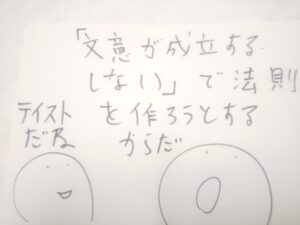 「文意が成立する
しない」で法則
を作ろうとする
からだ
テイスト
だね